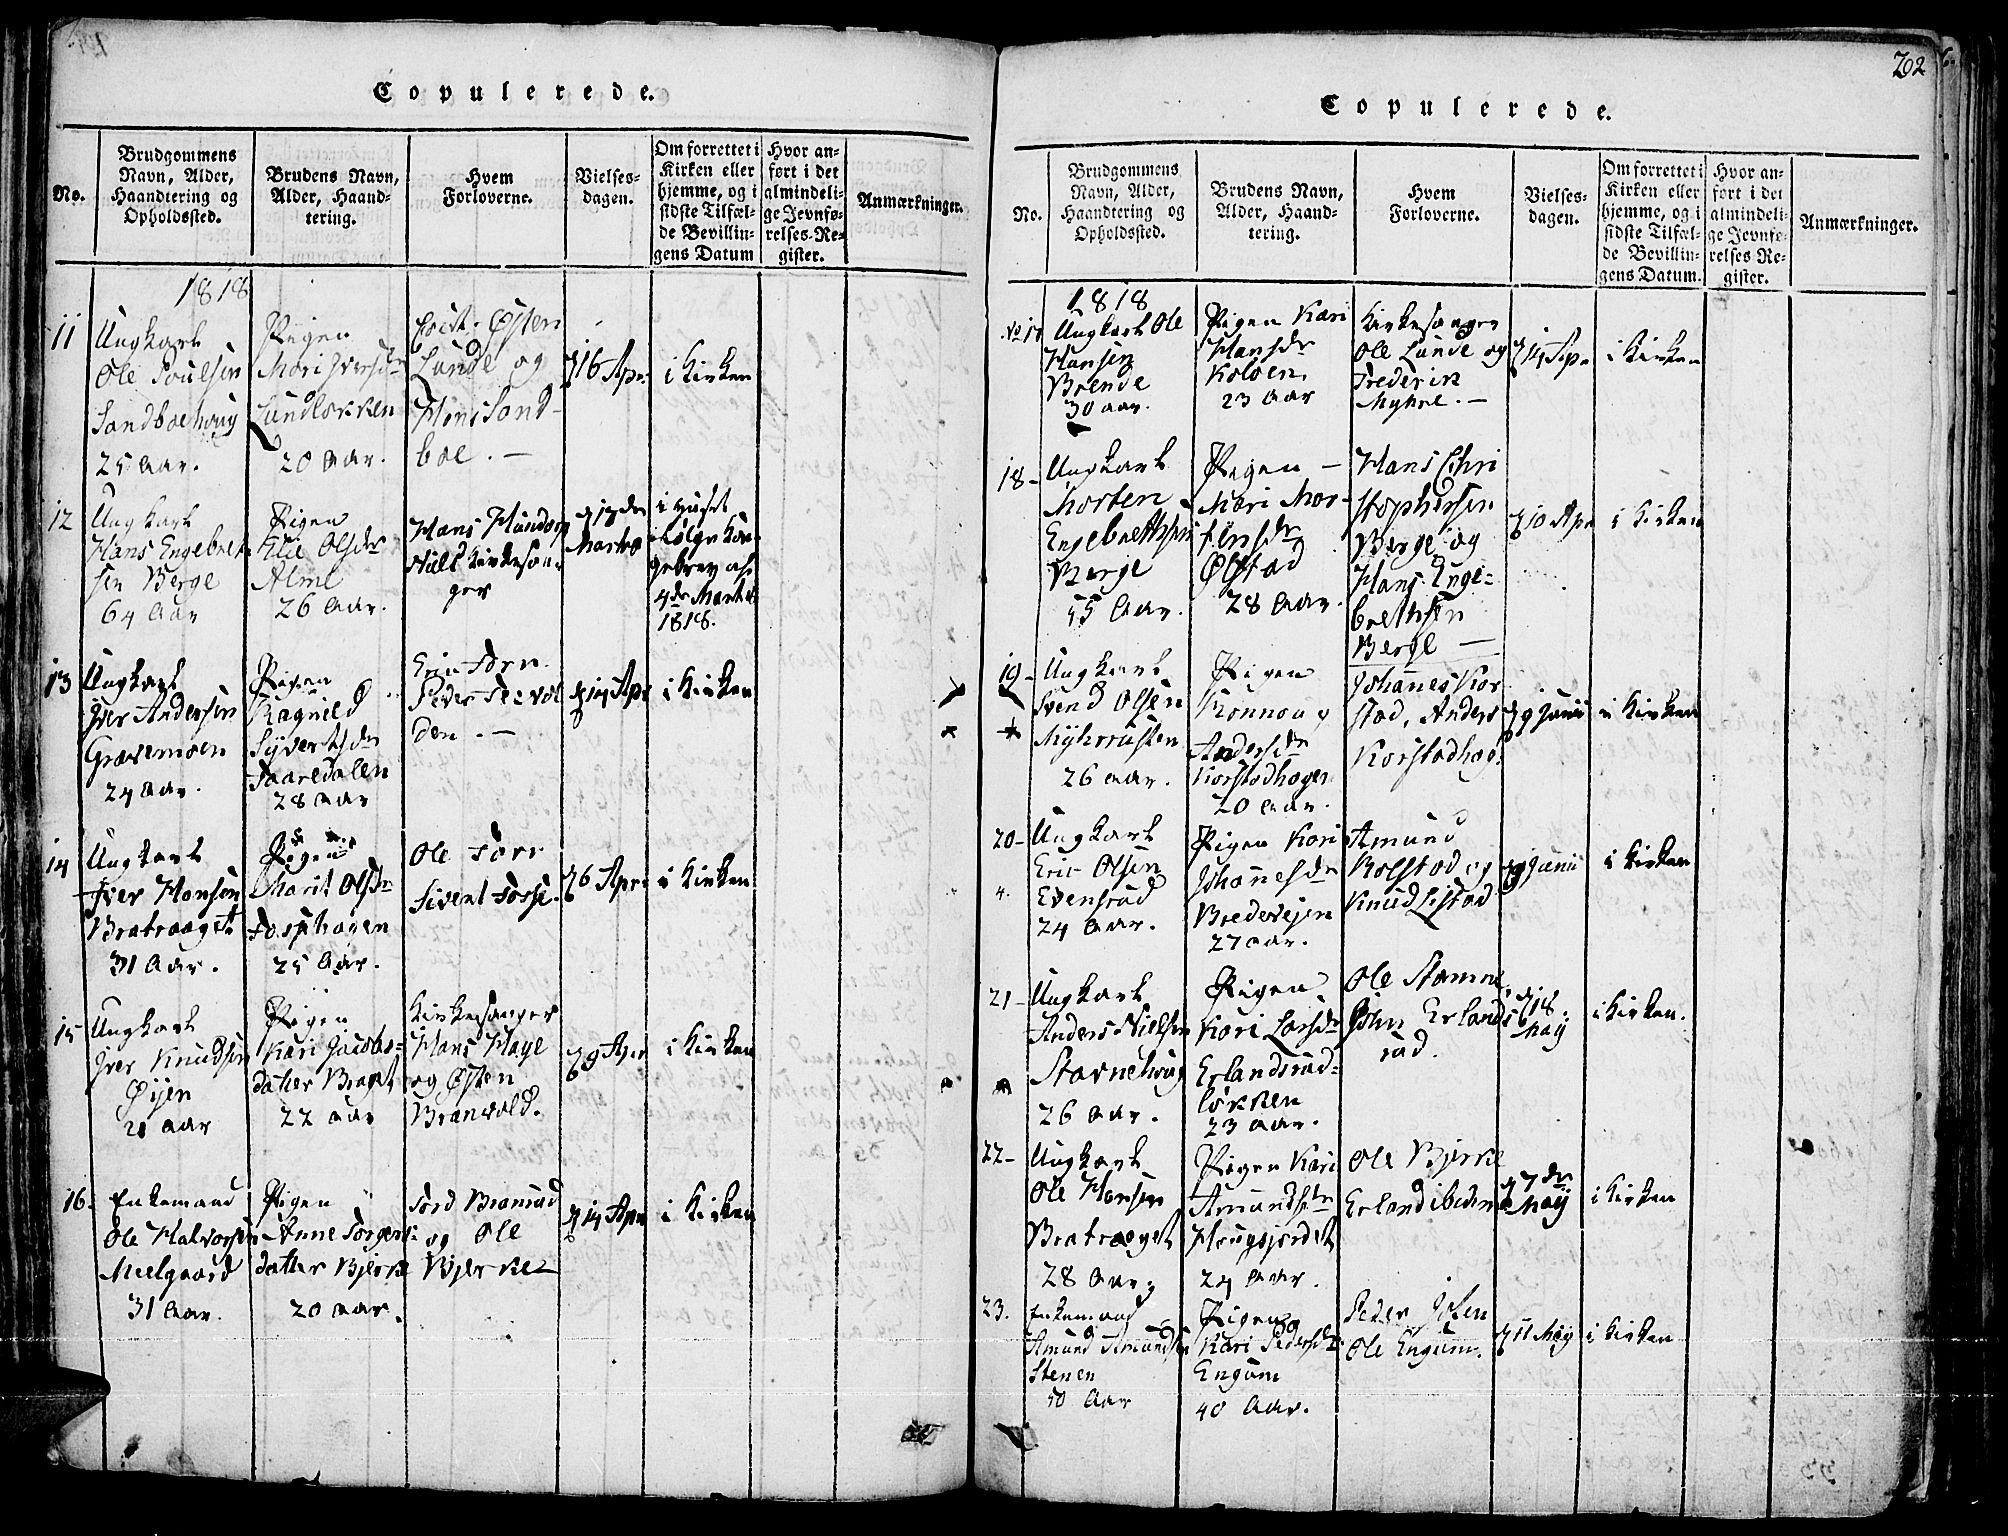 Copulerede.
No.
Brudgommens
Navn, Alder,
Haandtering og
Opholdssted.
Brudens Navn,
Alder, Haand-
tering.
Hvem
Forloverne.
Vielses-
dagen.
Om forrettet i
Kirken eller
hjemme, og i
sidste Tilfæl-
de Bevillin-
gens Datum
Hvor an-
ført i det
almindeli-
ge Jevnfø-
relses-Re-
gister.
Anmærkninger.
1818
11
Ungkarl
Ole Poulsen
Sandboehoug
25 Aar.
Pigen
Mari Iversdtr
Lundløkken
20 Aar.
Østen
Lunde og
Hans Sand-
boe. —
16 Apr:
i Kirken
12
Ungkarl
Hans Engebret-
sen Berge
64 Aar
Pigen
Eli Olsdr
Alme
26 Aar.
Hans Hundorp
Niels Kirkesan-
ger
17de
Martz
i Huset
ifølge Kon-
gebrev af
4de Martz
1818.
13
Ungkarl
Iver Andersen
Grævemoen
24 Aar.
Pigen
Ragnild
Syvertsdr
Faaredalen
28 Aar
Eric Forr
Peder
den. —
14 Apr
i Kirken
14
Ungkarl
Iver Hansen
Bratraaget
31 Aar.
Pigen
Marit Olsdr
Fossehagen
25 Aar.
Ole Forr
Sivert Fosse.
26 Apr:
i Kirken
15
Ungkarl
Iver Knudsen
Øyen
21 Aar
Pigen
Kari Jacobs-
datter Bragt
22 Aar
Kirkesanger
Hans Hage
og Østen
Branvold.
29 Apr
i Kirken
16.
Enkemand
Ole Halvorsen
Melgaard
31 Aar.
Pigen
Anne Torgers-
datter Bjerke
20 Aar.
Tord Bransrud
og Ole
Bjerke
14 Apr
i Kirken
202
Copulerede.
No.
Brudgommens
Navn, Alder,
Haandtering og
Opholdssted.
Brudens Navn,
Alder, Haand-
tering.
Hvem
Forloverne.
Vielses-
dagen.
Om forrettet i
Kirken eller
hjemme, og i
sidste Tilfæl-
de Bevillin-
gens Datum.
Hvor an-
ført i det
almindeli-
ge Jevnfø-
relses Re-
gister.
Anmærkninger.
1818
No 17
Ungkarl Ole
Hansen
Brende
30 Aar.
Pigen Kari
Hansdr
Kolven
23 Aar
Kirkesanger
Ole Lunde og
Frederik
Myhre. —
14 Apr
i Kirken
18-
Ungkarl
Morten
Engebrethsen
Berge
55 Aar.
Pigen —
Mari Mor-
tensdr
Ølstad
28 Aar.
Hans Chri
stophersen
Berge og
Hans Enge-
brethsen
Berge —
10 Apr
i Kirken
19-
Ungkarl
Svend Olsen
Myhrrusten
26 Aar.
Pigen
Ronnoug
Andersdr
Korstadhagen
20 Aar.
Johanes Kor
stad, Anders
Korstadhag.
9 Junii
i Kirken
20-
Ungkarl
Eric Olsen
Evensrud
24 Aar.
Pigen Kari
Johanesdr
Bredevejen
27 Aar.
Amund
Kolstad og
Knud Listad
9 Junii
i Kirken
21-
Ungkarl
Anders Nielsen
Stavnehoug
26 Aar.
Pigen
Kari Larsdr
Erlandsrud-
løkken
23 Aar.
Ole Stamne
John Erlands
rud.
18
May
i Kirken.
22-
Ungkarl
Ole Hansen
Bratraaget
28 Aar,
Pigen Kari
Amundsdr
Hougsjordet
24 Aar.
Ole Bjerke
Erland ibidem
7de
May
i Kirken
23.
Enkemand
Amund Amundsen
Stenen
50 Aar
Pigen
Kari Pedersdr
Engum
40 Aar.
Peder
Ole Engum.
11 May
i Kirken